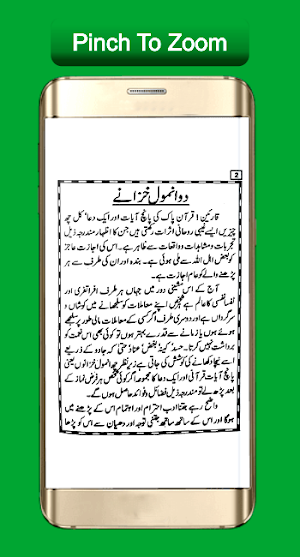 Pinch To Zoom
2
دو انمول خزانے
قارئین! قرآن پاک کی پانچ آیات اور ایک دعا کل چھ
چیزیں ایسے غیبی روحانی اثرات رکھتی ہیں جن کا اظہار مندرجہ ذیل
تجربات ومشاہدات و واقعات سے ظاہر ہے۔ اس کی اجازت عاجز
کو بعض اہل اللہ سے ملی ہوئی ہے۔ بندہ اور ان کی طرف سے ہر
پڑھنے والے کو عام اجازت ہے۔
آج کے اس مشینی دور میں جہاں ہر طرف افراتفری اور
نفسانفسی کا عالم ہے ہر شخص اپنے معاملات کو سلجھانے میں کوشاں و
سرگرداں ہے اور دوسری طرف اگر کسی کے معاملات مالی طور پر سلجھے
ہوئے ہوں یا زمانے سے قدرے بہتر ہوں تو کوئی بھی اس نعمت کو
برداشت نہیں کرتا۔ حسد، کینہ، بغض، عناد حتیٰ کہ جادو کے ذریعے
اسے نیچا دکھانے کی کوشش کی جاتی ہے زیر نظر چھ انمول خزانوں یعنی
پانچ آیات قرآنی اور ایک دعا کا مجموعہ اگر کوئی شخص ہر فرض نماز کے
بعد پڑھ لے تو مندرجہ ذیل فضائل و فوائد حاصل ہوں گے۔
واضح رہے جتنا ادب احترام اور اہتمام اس کے پڑھنے میں
ہوگا اور اس کے ساتھ ساتھ جتنی توجہ اور دھیان سے اس کو پڑھا